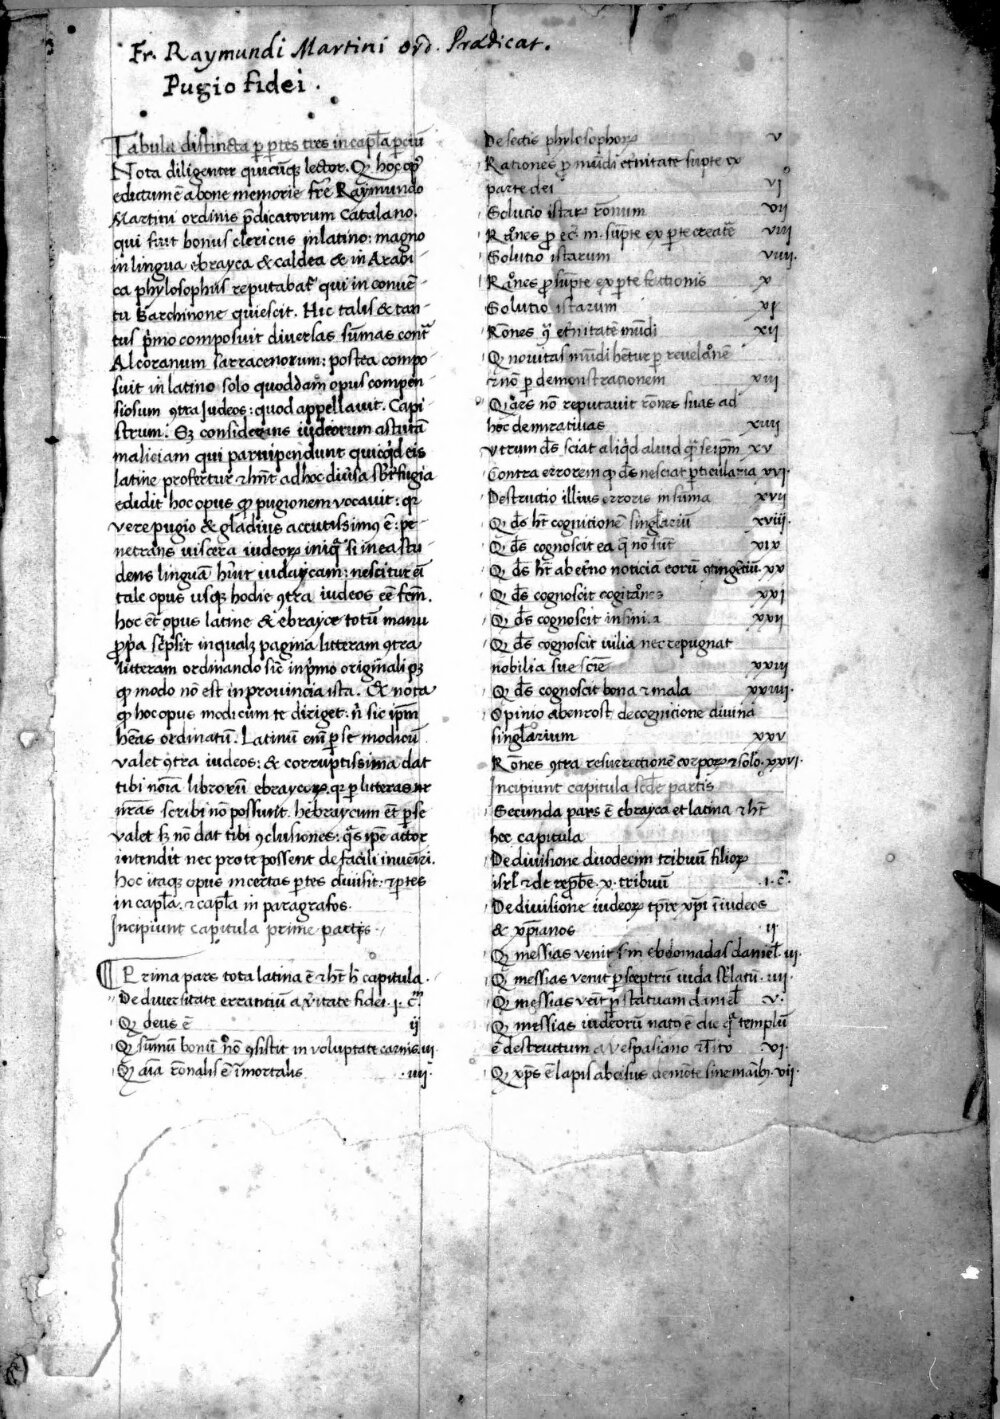 Fr. Raymundi Martini Ord. Prædicat.
Pugio fidei.
Tabula distincta ꝑ ꝑtes tres in capl̄a ꝑciū
Nota diligenter quicūqꝫ lector. Qꝫ hoc opꝰ
editum ē a bone memorie frē Raymundo
Martini ordinis p̄dicatorum Catalano.
qui fuit bonus clericus in latino: magno
in lingua ebrayca & caldea & in Arabi-
ca phylosophus reputabat᷑ qui in conuē-
tu Barchinone quiescit. Hic talis & tan-
tus p̄mo composuit diuersas sūmas cont᷑
Alcoranum sarracenorum: postea compo-
suit in latino solo quoddam opus compen-
siosum ꝯtra Judeos: quod appellauit. Capi
strum. Sꝫ considerans iudeorum astutā
maliciam qui paruipendunt quicqͥd eis
latine profertur ⁊ hn̄t ad hoc diūsa sb̄t᷑fugia
edidit hoc opus qͩ pugionem vocauit: qꝛ
vere pugio & gladius accutissimꝰ ē: pe-
netrans viscera iudeoꝝ iniqͣ si in ea stu
dens linguā hūit iudaycam: nescitur eī
tale opus usqꝫ hodie ꝯtra iudeos eē fcm̄.
hoc ēt opus latine & ebrayce totū manu
ꝓpa sc̄psit in qualꝫ pagina litteram ꝯtra
litteram ordinando sic̄ in p̄mo originali pꝫ
qͩ modo nō est in prouincia ista. Et nota
qͩ hoc opus modicum te diriget: n̄ sic ip̄m
hēas ordinatū. Latinū em̄ ꝑ se modicū
valet ꝯtra iudeos: & corruptissima dat
tibi noīa librorū ebraycoꝝ. qꝛ ꝑ litteras
nr̄as scribi nō possunt. hebraycum ēt ꝑ se
valet sꝫ nō dat tibi ꝯclusiones: qͣs ip̄e actor
intendit nec pro te possent de facili inueīri.
hoc itaqꝫ opus in certas ꝑtes diuisit: ⁊ ꝑtes
in capl̄a. ⁊ capl̄a in paragrafos.
Incipiunt capitula prime partis.
¶ Prima pars tota latina ē ⁊ ht̄ h̄ capitula.
De diuersitate erratiū a v̄itate fidei. i. cᵐ
Qꝫ deus ē ii
Qꝫ sūmū bonū hōis nō ꝯsistit in voluptate carnis. iii.
Qꝫ aīa rōnalis ē īmortalis .iiii.
De sectis phylosophoꝝ v
Rationes ꝓ mūdi et̄nitate sūpte ex
parte dei vi°
Solutio istaꝝ rōnum vii
Rōnes ꝓ ead̄. m. sūpte ex ꝑte creat᷑e viii
Solutio istarum viiii.
Rōnes ꝓ sūpte ex ꝑte factionis x
Solutio istarum xi
Rōnes qͩ et̄nitatē mūdi xii
Qꝫ nouitas mūdi het̄ur ꝑ reuelōnē
⁊ nō ꝑ demonstrationem xiii
Qꝫ ar̄s nō reputauit rōnes suas ad
hoc demratiuas xiiii
Vtrum dś sciat aliqͥd aliud qͣ seip̄m xv
Contra errorem qͩ dś nesciat ꝑticularia xvi.
Destructio illius erroris in suma xvii
Qꝫ dś ht̄ cognitionē singl̄ariū xviii.
Qꝫ dś cognoscit ea q̄ nō sūt xix
Qꝫ dś ht̄ ab et̄no noticiā eorū ꝯtingētiū. xx
Qꝫ dś cognoscit cogitōnes xxi
Qꝫ dś cognoscit infinita xxii
Qꝫ dś cognoscit uilia nec repugnat
nobilia sue sciē xxiii
Qꝫ dś cognoscit bona ⁊ mala xxiiii.
Opinio abenrost de cognicione diuina
singl̄arium xxv
Rōnes ꝯtra resurrectionē corpoꝝ ⁊ solō. xxvi.
Incipiunt capitula scd̄e partis
Secunda pars ē ebrayca et latina ⁊ ht̄
hec capitula
De diuisione duodecim tribuū filioꝝ
isrl̄ ⁊ de rep̄b̄e. x. tribuū .i. cᵐ.
De diuisione iudeoꝝ tp̄re xp̄i ī iudeos
& xp̄ianos ii
Qꝫ messias venit s̄m ebdomadas daniel̄. iii.
Qꝫ messias venit ꝑ sceptrū iuda sb̄latū. iiii.
Qꝫ messias veīt ꝑ statuam daniel̄ v.
Qꝫ messias iudeorū natꝰ ē die qͣ templū
ē destructum a vespasiano ⁊ Tito .vi.
Qꝫ xp̄s ē lapis abcisus de mōte sine maībꝫ. vii.